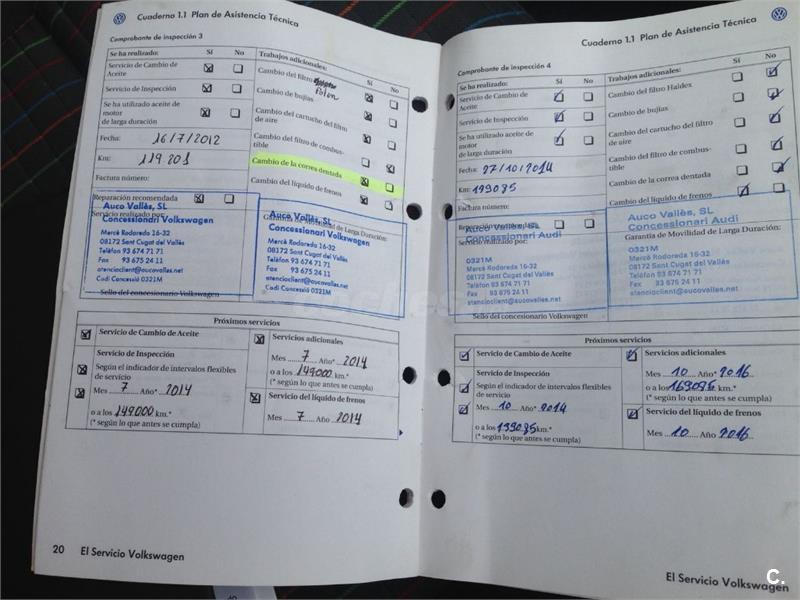 Cuaderno 1.1 Plan de Asistencia Técnica
Comprobante de inspección 3
Se ha realizado: Sí No
Servicio de Cambio de
Aceite
Servicio de Inspección
Se ha utilizado aceite de
motor
de larga duración
Fecha: 16/7/2012
Km: 119.201
Factura número:
Reparación recomendada
Servicio realizado por:
Auco Vallès, SL
Concessionari Volkswagen
Mercè Rodoreda 16-32
08172 Sant Cugat del Vallès
Telèfon 93 674 71 71
Fax 93 675 24 11
atencioclient@aucovalles.net
Codi Concessió 0321M
Sello del concesionario Volkswagen
Trabajos adicionales: Sí No
Cambio del filtro Polen
Cambio de bujías
Cambio del cartucho del filtro
de aire
Cambio del filtro de combus-
tible
Cambio de la correa dentada
Cambio del líquido de frenos
Garantía de Movilidad de Larga Duración:
Auco Vallès, SL
Concessionari Volkswagen
Mercè Rodoreda 16-32
08172 Sant Cugat del Vallès
Telèfon 93 674 71 71
Fax 93 675 24 11
atencioclient@aucovalles.net
Codi Concessió 0321M
Próximos servicios
Servicio de Cambio de Aceite
Servicio de Inspección
Según el indicador de intervalos flexibles
de servicio
Mes 7 Año* 2014
o a los 149000 km.*
(* según lo que antes se cumpla)
Servicios adicionales
Mes 7 Año* 2014
o a los 149000 km.*
(* según lo que antes se cumpla)
Servicio del líquido de frenos
Mes 7 Año 2014
20 El Servicio Volkswagen
Cuaderno 1.1 Plan de Asistencia Técnica
Comprobante de inspección 4
Se ha realizado: Sí No
Servicio de Cambio de
Aceite
Servicio de Inspección
Se ha utilizado aceite de
motor
de larga duración
Fecha: 27/10/2014
Km: 139085
Factura número:
Reparación recomendada
Servicio realizado por:
Auco Vallès, SL
Concessionari Audi
0321M
Mercè Rodoreda 16-32
08172 Sant Cugat del Vallès
Telèfon 93 674 71 71
Fax 93 675 24 11
atencioclient@aucovalles.net
Sello del concesionario Volkswagen
Trabajos adicionales: Sí No
Cambio del filtro Haldex
Cambio de bujías
Cambio del cartucho del filtro
de aire
Cambio del filtro de combus-
tible
Cambio de la correa dentada
Cambio del líquido de frenos
Garantía de Movilidad de Larga Duración:
Auco Vallès, SL
Concessionari Audi
0321M
Mercè Rodoreda 16-32
08172 Sant Cugat del Vallès
Telèfon 93 674 71 71
Fax 93 675 24 11
atencioclient@aucovalles.net
Próximos servicios
Servicio de Cambio de Aceite
Servicio de Inspección
Según el indicador de intervalos flexibles
de servicio
Mes 10 Año* 2014
o a los 139085 km.*
(* según lo que antes se cumpla)
Servicios adicionales
Mes 10 Año* 2016
o a los 169085 km.*
(* según lo que antes se cumpla)
Servicio del líquido de frenos
Mes 10 Año 2016
El Servicio Volkswagen
C.